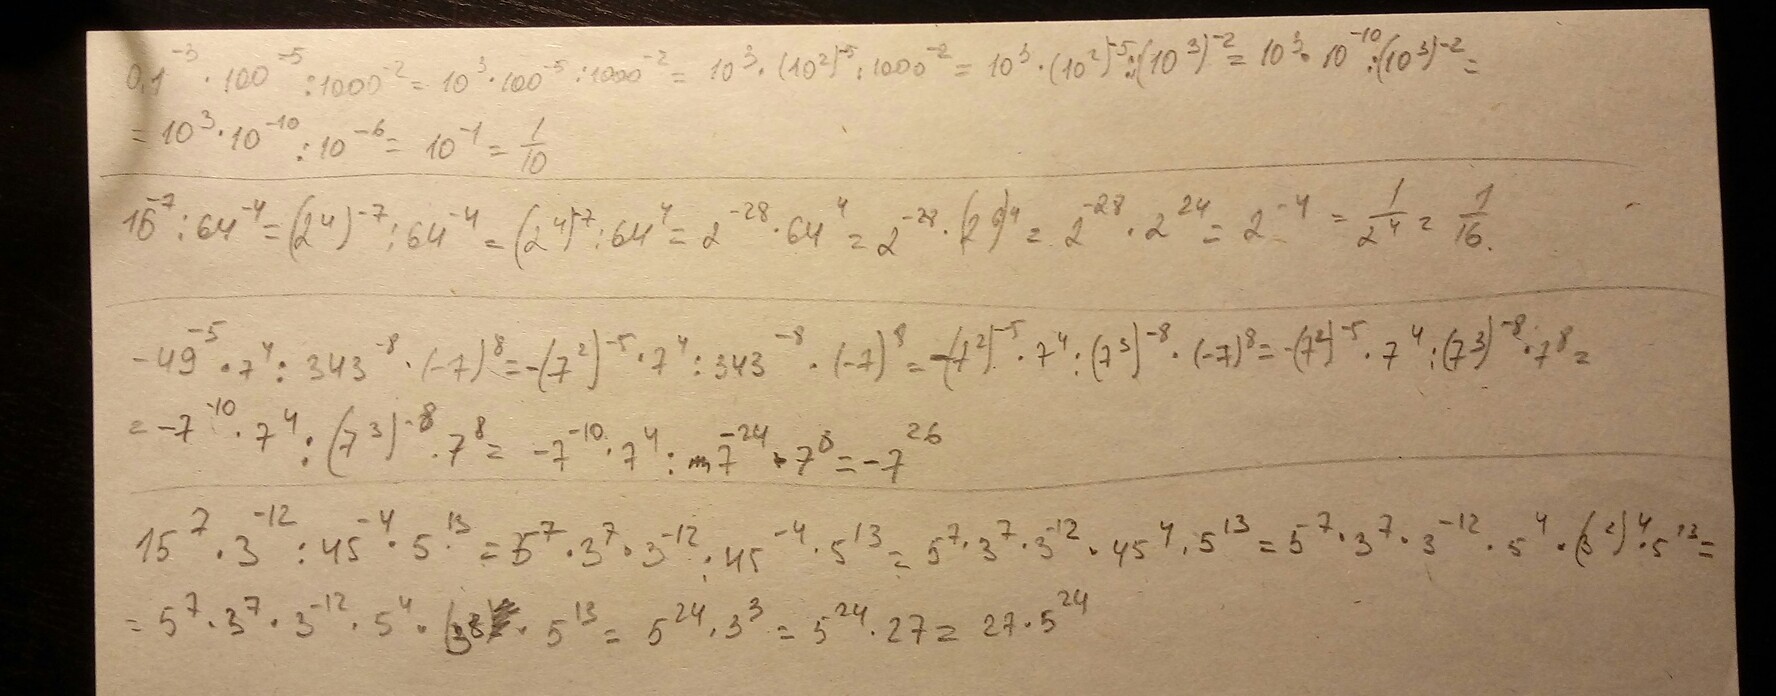 0,1^{-3} · 100^{-5} : 1000^{-2} = 10^3 · 100^{-5} : 1000^{-2} = 10^3 · (10^2)^{-5} : 1000^{-2} = 10^3 · (10^2)^{-5} : (10^3)^{-2} = 10^3 · 10^{-10} : (10^3)^{-2} =
= 10^3 · 10^{-10} : 10^{-6} = 10^{-1} = 1/10
16^{-7} : 64^{-4} = (2^4)^{-7} : 64^{-4} = (2^4)^{-7} : 64^4 = 2^{-28} · 64^4 = 2^{-28} · (2^6)^4 = 2^{-28} · 2^{24} = 2^{-4} = 1/2^4 = 1/16.
-49^{-5} · 7^4 : 343^{-8} · (-7)^8 = -(7^2)^{-5} · 7^4 : 343^{-8} · (-7)^8 = -(7^2)^{-5} · 7^4 : (7^3)^{-8} · (-7)^8 = -(7^2)^{-5} · 7^4 : (7^3)^{-8} · 7^8 =
= -7^{-10} · 7^4 : (7^3)^{-8} · 7^8 = -7^{-10} · 7^4 : 7^{-24} · 7^8 = -7^{26}
15^7 · 3^{-12} : 45^{-4} · 5^{13} = 5^7 · 3^7 · 3^{-12} : 45^{-4} · 5^{13} = 5^7 · 3^7 · 3^{-12} · 45^4 · 5^{13} = 5^7 · 3^7 · 3^{-12} · 5^4 · (3^2)^4 · 5^{13} =
= 5^7 · 3^7 · 3^{-12} · 5^4 · 3^8 · 5^{13} = 5^{24} · 3^3 = 5^{24} · 27 = 27 · 5^{24}